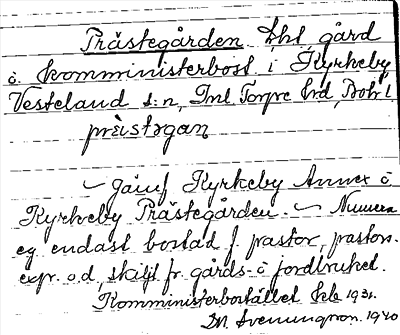 Prästegården Skt gård
o. komministerbost i Kyrkeby
Vesteland s:n, Inl Torpe hrd, Boh l
prèistəgaɳ
~ Jämf Kyrkeby Annex o
Kyrkeby Prästegården. ~ Numera
ej endast bostad f. pastor, pastors-
exp. o.d., skiljt fr gårds- o jordbruket.
Komministerbostället 1931.
D.A. Svenningson. 1940